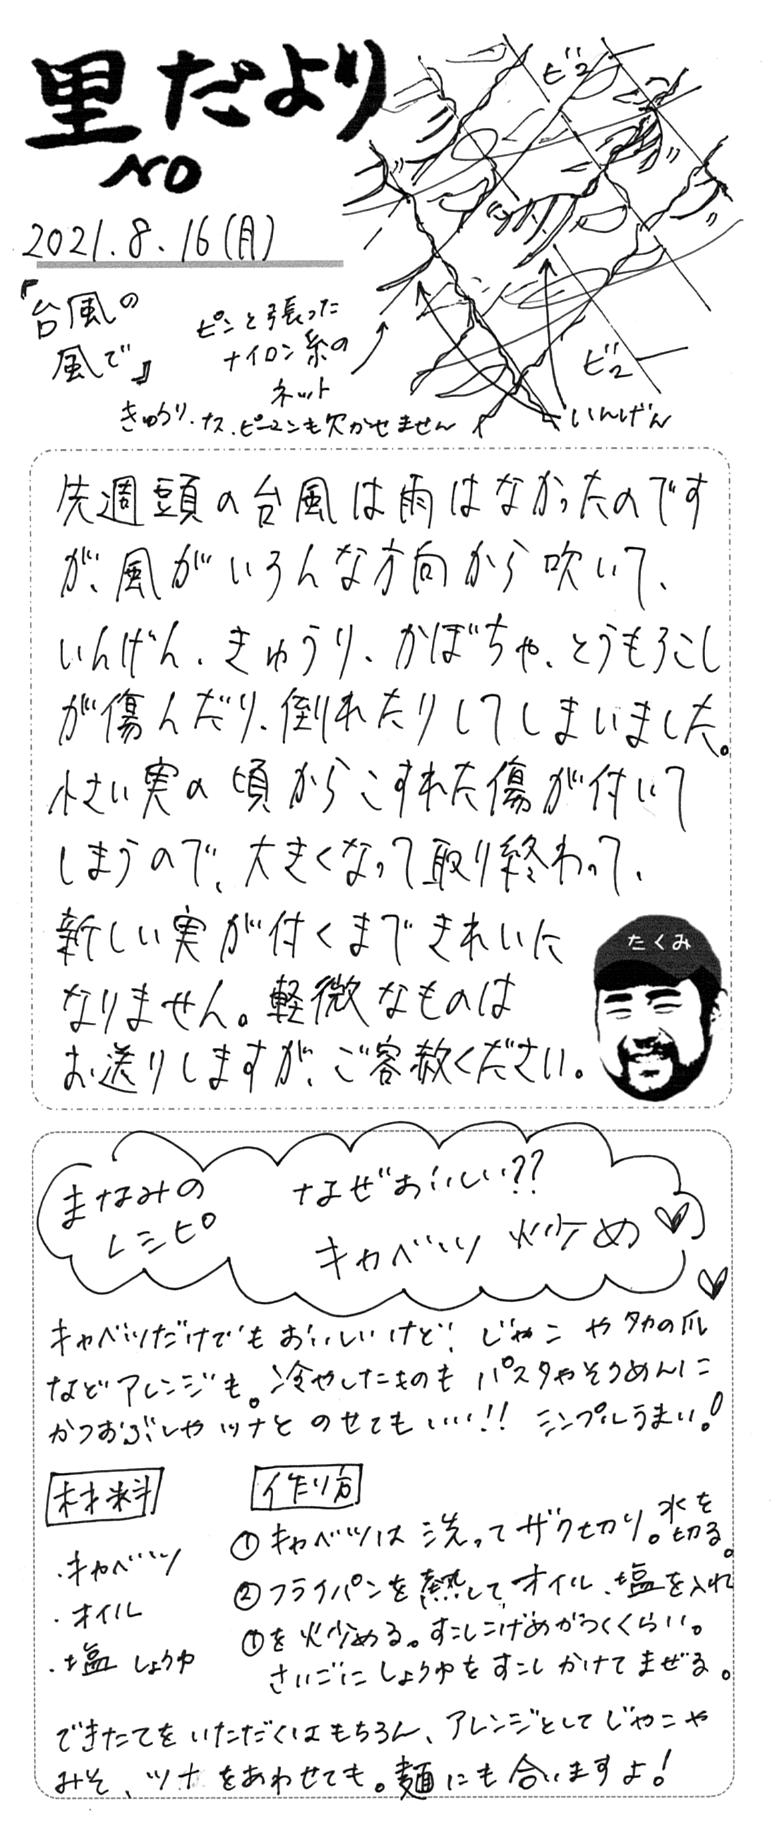 里だより
NO
2021.8.16(月)
『台風の
風で』
ピンと張った
ナイロン糸の
ネット
きゅうり、ナス、ピーマンも欠かせません
ピュー
ピュー
いんげん
先週頭の台風は雨はなかったのです
が、風がいろんな方向から吹いて、
いんげん、きゅうり、かぼちゃ、とうもろこし
が傷んだり、倒れたりしてしまいました。
小さい実の頃からこすれた傷が付いて
しまうので、大きくなって取り終わって、
新しい実が付くまできれいに
なりません。軽微なものは
お送りしますが、ご容赦ください。
たくみ
まなみの
レシピ
なぜおいしい??
キャベツ炒め
キャベツだけでもおいしいけど、じゃこや鷹の爪
などアレンジも。冷やしたものもパスタやそうめんに
かつおぶしやツナとのせてもいい!! シンプルうまい!
材料
・キャベツ
・オイル
・塩 しょうゆ
作り方
①キャベツは洗ってザク切り。水を切る。
②フライパンを熱して、オイル、塩を入れ
①を炒める。すこしこげめがつくくらい。
さいごにしょうゆをすこしかけてまぜる。
できたてをいただくはもちろん、アレンジとしてじゃこや
みそ、ツナをあわせても。麺にも合いますよ!